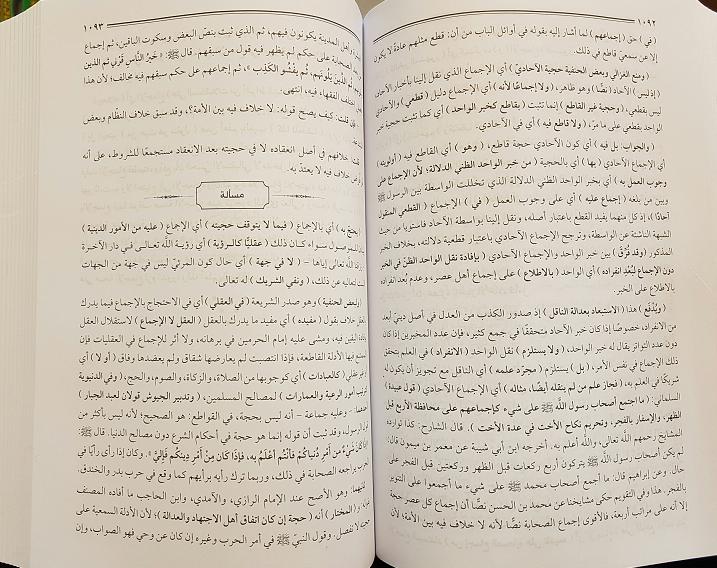 ١٠٩٢
( في ) حق ( إجماعهم ) لما أشار إليه بقوله في أوائل الباب من أن: قطع مثلهم عادة لا يكون
إلا عن سمعيّ قاطع في ذلك.
( ومنع الغزالي وبعض الحنفية حجية الآحادي ) أي الإجماع الذي نقل إلينا بأخبار الآحاد،
( إذ ليس ) الآحاد ( نصًّا ) وهو ظاهر، ( ولا إجماعًا لأنه ) أي الإجماع دليل ( قطعي ) والآحادي
ليس بقطعي، ( وحجية غير القاطع ) إنما تثبت ( بقاطع كخبر الواحد ) أي كما تثبت حجية خبر
الواحد بقطعي على ما مرّ، ( ولا قاطع فيه ) أي في الآحادي.
( والجواب: بل فيه ) أي كون الآحادي حجة قاطع، ( وهو ) أي القاطع فيه ( أولويته )
أي الإجماع الآحادي ( بها ) أي بالحجية ( من خبر الواحد الظني الدلالة؛ لأن الإجماع على
وجوب العمل به ) أي بخبر الواحد الظني الدلالة الذي تخللت الواسطة بين الرسول ﷺ
وبين من بلغه ( إجماع عليه ) أي على وجوب العمل ( في ) الإجماع ( القطعي المنقول
آحادًا )، إذ كل منهما يفيد القطع باعتبار أصله، ونقل إلينا بواسطة الآحاد فاستويا من حيث
الشبهة الناشئة عن الواسطة، وترجح الإجماع الآحادي باعتبار قطعية دلالته، بخلاف الخبر
المذكور ( وقد فُرّق ) بين خبر الواحد والإجماع الآحادي ( بإفادة نقل الواحد الظنّ في الخبر
دون الإجماع لبُعدِ انفراده ) أي الواحد ( بالاطلاع ) على إجماع أهل عصر، وعدم بُعد انفراده
بالاطلاع على الخبر.
( ويُدْفَع ) هذا ( الاستبعاد بعدالة الناقل ) إذ صدور الكذب من العدل في أصل دينيّ أبعد
من الانفراد، خصوصًا إذا كان خبر الآحاد متحققًا في جمع كثير، فإن عدد المخبرين إذا كان
دون عدد التواتر يقال له خبر الواحد، ( ولا يستلزم ) نقل الواحد ( الانفراد ) في العلم بتحقق
ذلك الإجماع في نفس الأمر، ( بل ) يستلزم ( مجرّد علمه ) أي الناقل مع تجويز أن يكون له
شريكًا في العلم به، ( فجاز علم من لم ينقله أيضًا، مثاله ) أي الإجماع الآحادي ( قول عبيدة )
السلماني: ( ما اجتمع أصحاب رسول الله ﷺ على شيء كإجماعهم على محافظة الأربع قبل
الظهر، والإسفار بالفجر، وتحريم نكاح الأخت في عدة الأخت ). قال الشارح: كذا توارده
المشايخ رحمهم الله تعالى، والله أعلم به. أخرجه ابن أبي شيبة عن معمر بن ميمون قال:
لم يكن أصحاب رسول الله ﷺ يتركون أربع ركعات قبل الظهر وركعتين قبل الفجر على
حال. وعن إبراهيم قال: ما أجمع أصحاب محمد ﷺ على شيء ما أجمعوا على التنوير
بالفجر. هذا وفي التقويم حكى مشايخنا عن محمد بن الحسن نصًّا أن إجماع كل عصر حجة
إلا أنه على مراتب أربعة، فالأقوى إجماع الصحابة نصًّا لأنه لا خلاف فيه بين الأمة؛ لأن
١٠٩٣
وأهل المدينة يكونون فيهم، ثم الذي ثبت بنصّ البعض وسكوت الباقين، ثم إجماع
الصحابة على حكم لم يظهر فيه قول من سبقهم. قال ﷺ: « خَيرُ النَّاسِ قَرْني ثم الذين
الَّذينَ يَلُونَهم، ثُمَّ يَفْشُو الكَذِب »، ثم إجماعهم على حكم سبقهم فيه مخالف؛ لأن هذا
اختلف الفقهاء فيه، انتهى.
قلت: كيف يصح قوله: لا خلاف فيه بين الأمة؟، وقد سبق خلاف النظّام وبعض
خلافهم في أصل انعقاده لا في حجيته بعد الانعقاد مستجمعًا للشروط، على أنه
خلاف فيه لا يعتدّ به.
مسألة
به ) أي بالإجماع ( فيما لا يتوقف حجيته ) أي الإجماع ( عليه من الأمور الدينية )
سواء كان ذلك ( عقليًّا كالرؤية ) أي رؤية الله تعالى في دار الآخرة
الله تعالى إياها - ( لا في جهة ) أي حال كون المرئيّ ليس في جهة من الجهات
عن ذلك، ( ونفي الشريك ) له تعالى.
( ولبعض الحنفية ) وهو صدر الشريعة ( في العقلي ) أي في الاحتجاج بالإجماع فيما يدرك
خلاف بقوله ( مفيده ) أي مفيد ما يدرك بالعقل ( العقل لا الإجماع ) لاستقلال العقل
اليقين فيه، ومشى عليه إمام الحرمين في برهانه، ولا أثر للإجماع في العقليات فإن
فيها الأدلة القاطعة، فإذا انتصبت لم يعارضها شقاق ولم يعضدها وفاق ( أو لا ) أي
عقلي ( كالعبادات ) أي كوجوبها من الصلاة، والزكاة، والصوم، والحج، ( وفي الدنيوية
كترتيب أمور الرعية والعمارات ) لمصالح المسلمين، ( وتدبير الجيوش قولان لعبد الجبار )
- وعليه جماعة - أنه ليس بحجة، في القواطع: هو الصحيح؛ لأنه ليس بأكثر من
قول الرسول، وقد ثبت أن قوله إنما هو حجة في أحكام الشرع دون مصالح الدنيا. قال ﷺ:
شيءٌ من أمرِ دُنياكُم فأنتُم أَعْلَمُ بِه، فإذا كانَ مِنْ أَمْرِ دِينِكُم فَإِليَّ ». وكان إذا رأى رأيًا في
الحرب يراجعه الصحابة في ذلك، وربما ترك رأيه برأيهم كما وقع في حرب بدر والخندق.
وهو الأصح عند الإمام الرازي، والآمدي، وابن الحاجب ما أفاده المصنف
( المختار ) أنه ( حجة إن كان اتفاق أهل الاجتهاد والعدالة )؛ لأن الأدلة السمعية على
لا تفصل. وقول النبيّ ﷺ في أمر الحرب وغيره إن كان عن وحي فهو الصواب، وإن